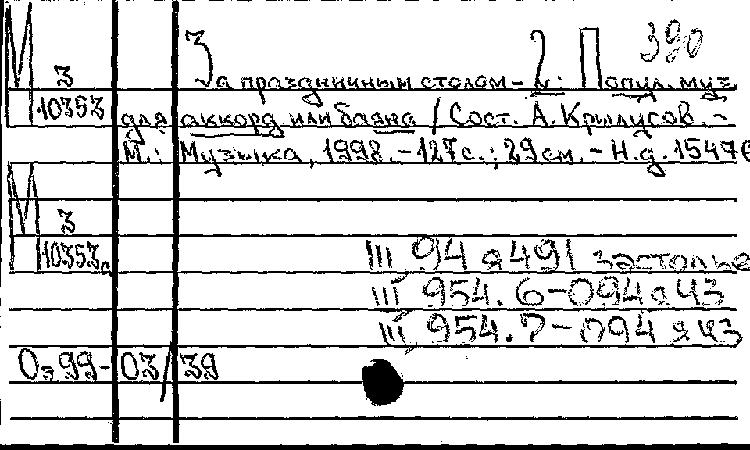 М З 390
З За праздничным столом - : Попул. муз.
10353 для аккорд. или баяна / Сост. А. Крылусов. -
М.: Музыка, 1998. - 127 с.; 29 см. - Н.д. 15476
М З
10353а
Ш 94 я 491 застолье
Ш 954.6-094 я ЧЗ
Ш 954.7-094 я ЧЗ
Оз 99-03/39